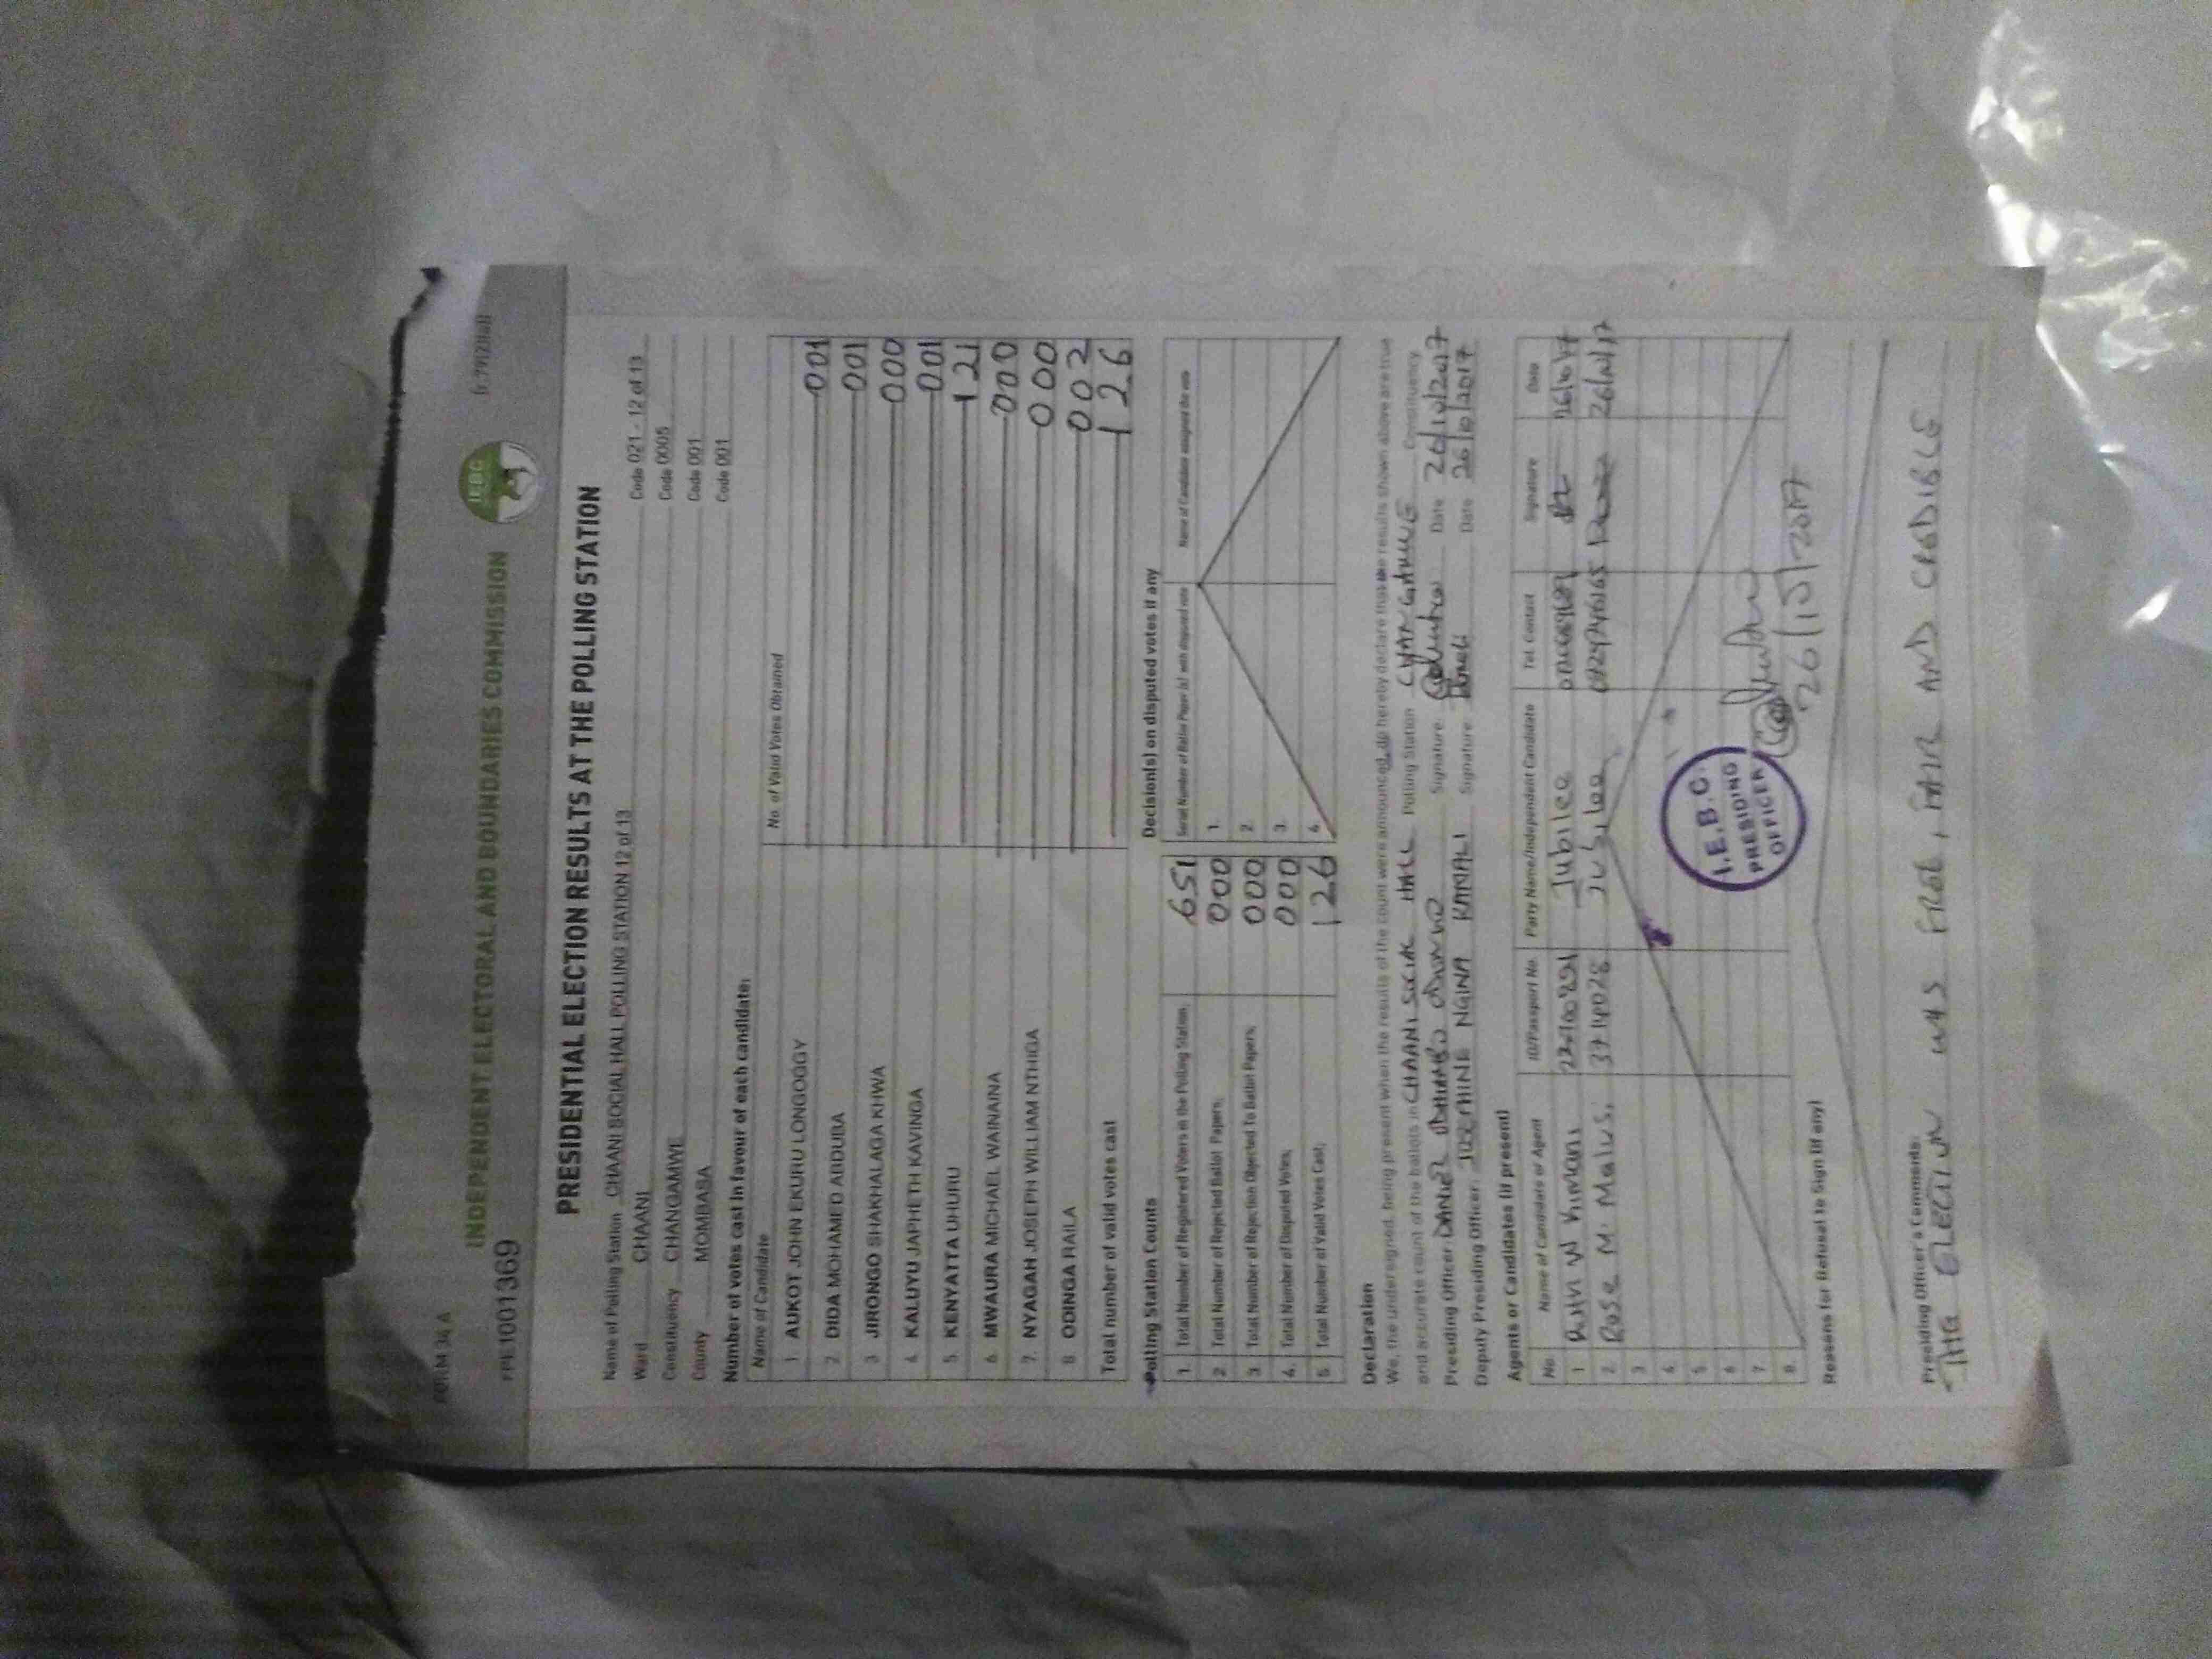 FORM 34 A
INDEPENDENT ELECTORAL AND BOUNDARIES COMMISSION
PE1001369
IEBC
PRESIDENTIAL ELECTION RESULTS AT THE POLLING STATION
Name of Polling Station CHAANI SOCIAL HALL POLLING STATION 12 of 13 Code 021 - 12 of 13
Ward CHAANI Code 0005
Constituency CHANGAMWE Code 001
County MOMBASA Code 001
Number of votes cast in favour of each candidate:
Name of Candidate No. of Valid Votes Obtained
1. AUKOT JOHN EKURU LONGOGGY 001
2. DIDA MOHAMED ABDUBA 001
3 JIRONGO SHAKHALAGA KHWA 000
4. KALUYU JAPHETH KAVINGA 001
5. KENYATTA UHURU 121
6. MWAURA MICHAEL WAINAINA 000
7. NYAGAH JOSEPH WILLIAM NTHIGA 000
8 ODINGA RAILA 002
Total number of valid votes cast 126
Polling Station Counts
1. Total Number of Registered Voters in the Polling Station; 651
2. Total Number of Rejected Ballot Papers; 000
3 Total Number of Rejection Objected To Ballot Papers; 000
4. Total Number of Disputed Votes; 000
5 Total Number of Valid Votes Cast; 126
Decision(s) on disputed votes if any
Serial Number of Ballot Paper (s) with disputed vote Name of Candidate assigned the vote
1.
2.
3.
4.
Declaration
We, the undersigned, being present when the results of the count were announced, do hereby declare that the results shown above are true
and accurate count of the ballots in CHAANI SOCIAL HALL Polling Station CHANGAMWE Constituency
Presiding Officer DANIEL Signature: Date 26/10/2017
Deputy Presiding Officer: JOSEPHINE NGINA KAMALI Signature: Date 26/10/2017
Agents or Candidates (if present)
No. Name of Candidate or Agent ID/Passport No. Party Name/Independent Candidate Tel. Contact Signature Date
1 Ruth W Jubilee 26/10/17
2. Rose M. Jubilee 26/10/17
3
4
5
6
7
8
I.E.B.C.
PRESIDING
OFFICER
26/10/2017
Reasons for Refusal to Sign (if any)
Presiding Officer's Comments:
THE ELECTION WAS FREE, FAIR AND CREDIBLE